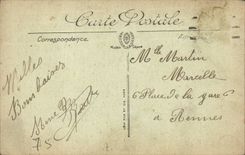 Carte Postale
Correspondance
Mlle Martin
Marcelle
6 Place de la gare
à Rennes
Milles
Bons baisers